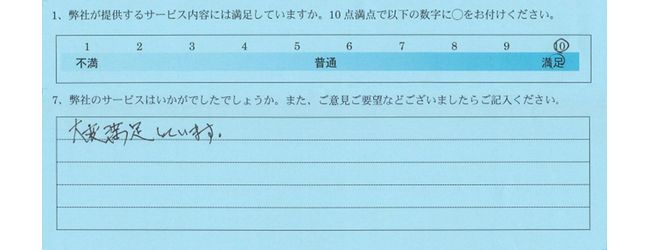 1、弊社が提供するサービス内容には満足していますか。10点満点で以下の数字に○をお付けください。
1 2 3 4 5 6 7 8 9 10
不満 普通 満足
7、弊社のサービスはいかがでしたでしょうか。また、ご意見ご要望などございましたらご記入ください。
大変満足しています。